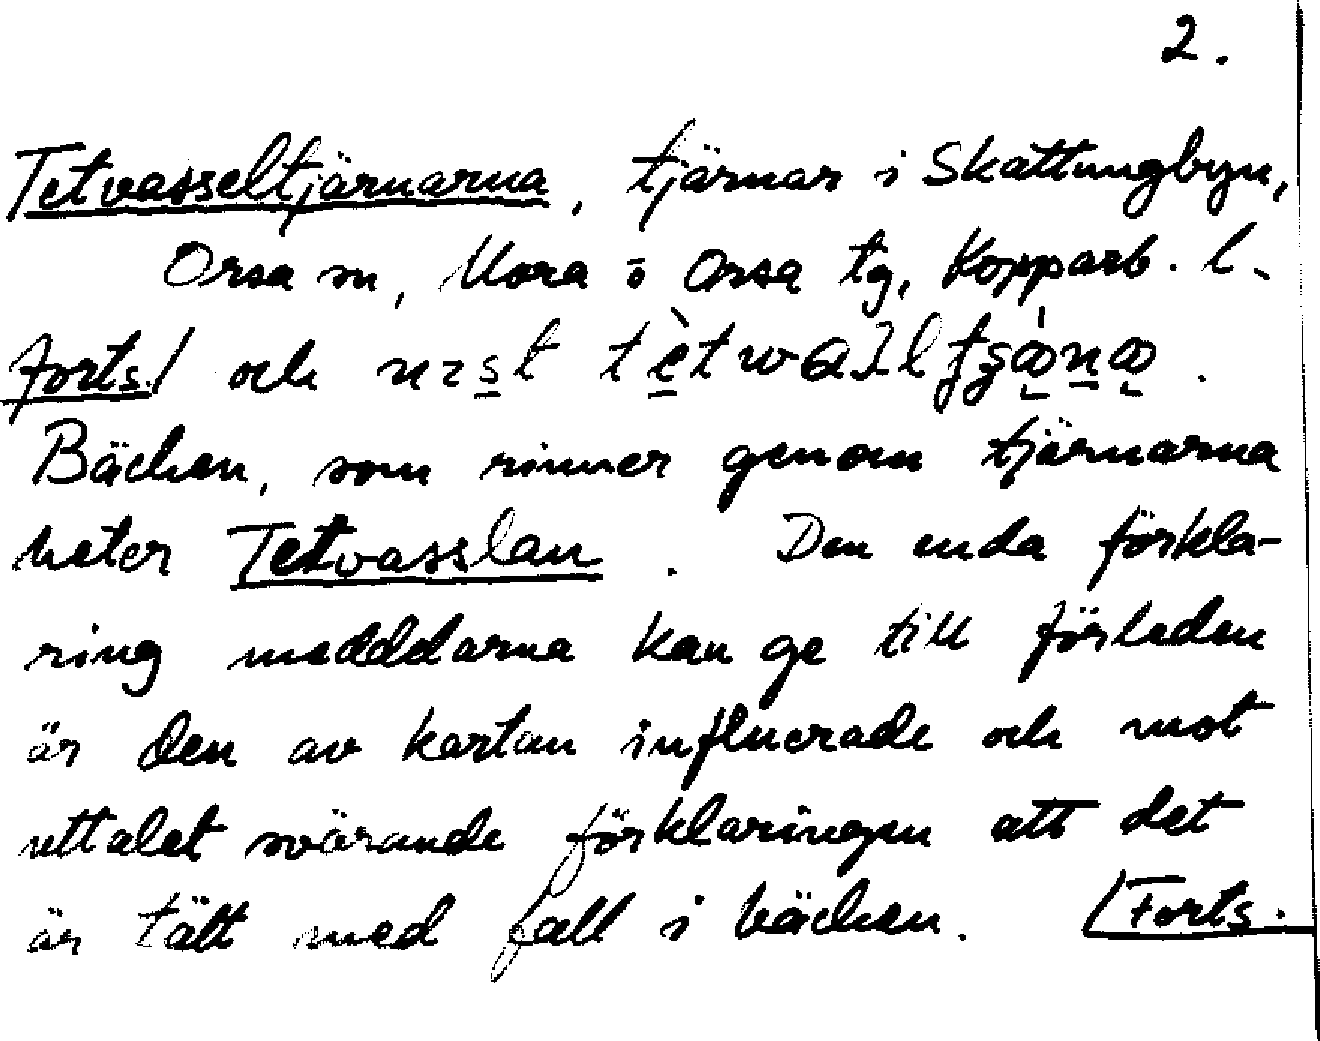 2.
Tetvasseltjärnarna, tjärnar i Skattungbyn,
Orsa sn, Mora o Orsa tg, Kopparb. l.
Forts./ och
Bäcken, som rinner genom tjärnarna
heter Tetvasslan. Den enda förkla-
ring meddelarna kan ge till förleden
är den av kartan influerade och mot
uttalet svärande förklaringen att det
är tätt med fall i bäcken. /Forts.